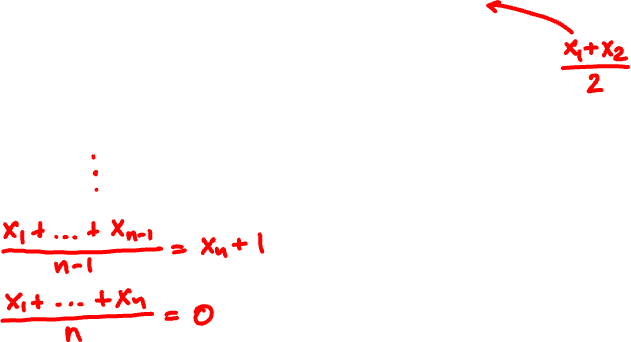 (x₁+x₂)/2
⋮
(x₁+...+x_{n-1})/(n-1) = x_n+1
(x₁+...+x_n)/n = 0